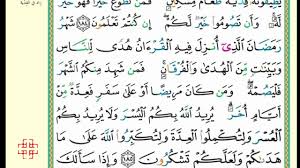 يُطِيقُونَهُۥ فِدْيَةٌ طَعَامُ مِسْكِينٍ فَمَن تَطَوَّعَ خَيْرًا فَهُوَ خَيْرٌ
لَّهُۥ وَأَن تَصُومُوا۟ خَيْرٌ لَّكُمْ إِن كُنتُمْ تَعْلَمُونَ ١٨٤ شَهْرُ
رَمَضَانَ ٱلَّذِىٓ أُنزِلَ فِيهِ ٱلْقُرْءَانُ هُدًى لِّلنَّاسِ
وَبَيِّنَٰتٍ مِّنَ ٱلْهُدَىٰ وَٱلْفُرْقَانِ فَمَن شَهِدَ مِنكُمُ ٱلشَّهْرَ
فَلْيَصُمْهُ وَمَن كَانَ مَرِيضًا أَوْ عَلَىٰ سَفَرٍ فَعِدَّةٌ مِّنْ
أَيَّامٍ أُخَرَ يُرِيدُ ٱللَّهُ بِكُمُ ٱلْيُسْرَ وَلَا يُرِيدُ بِكُمُ
ٱلْعُسْرَ وَلِتُكْمِلُوا۟ ٱلْعِدَّةَ وَلِتُكَبِّرُوا۟ ٱللَّهَ عَلَىٰ مَا
هَدَىٰكُمْ وَلَعَلَّكُمْ تَشْكُرُونَ ١٨٥ وَإِذَا سَأَلَكَ